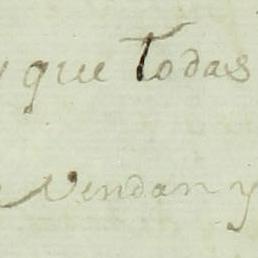 y que todas
vendan y